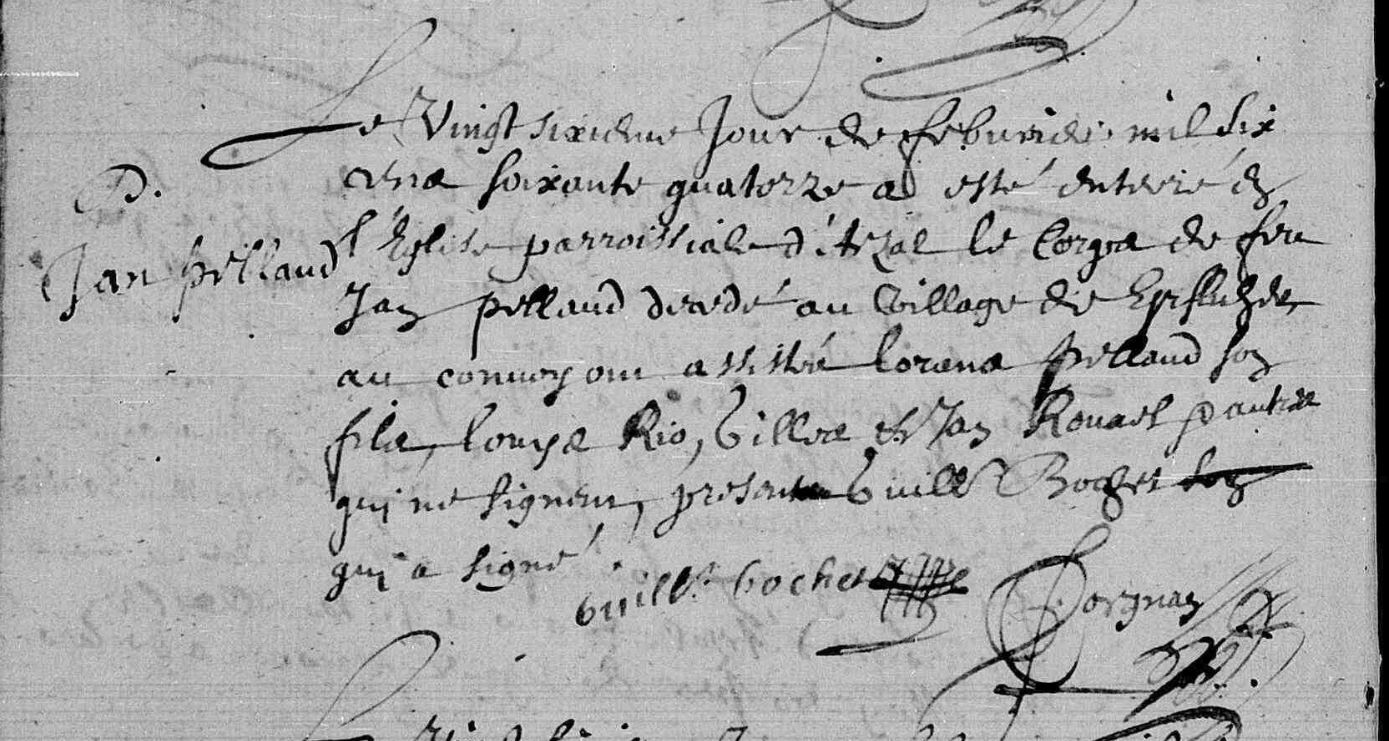 Le Vingt sixieme Jour de febvrier mil six
cens soixante quatorze a esté enterré en
D.
l'Eglise parroissiale d'Arzal le Corps de feu
Jan pellaud
Jan pellaud decedé au Village de
au convoy ont assisté Lorans pellaud son
fils, Louys Rio, Gilles et Jan Rouael autres
qui ne signent, presents Guill Bochet
qui a signé
Guill. bochet